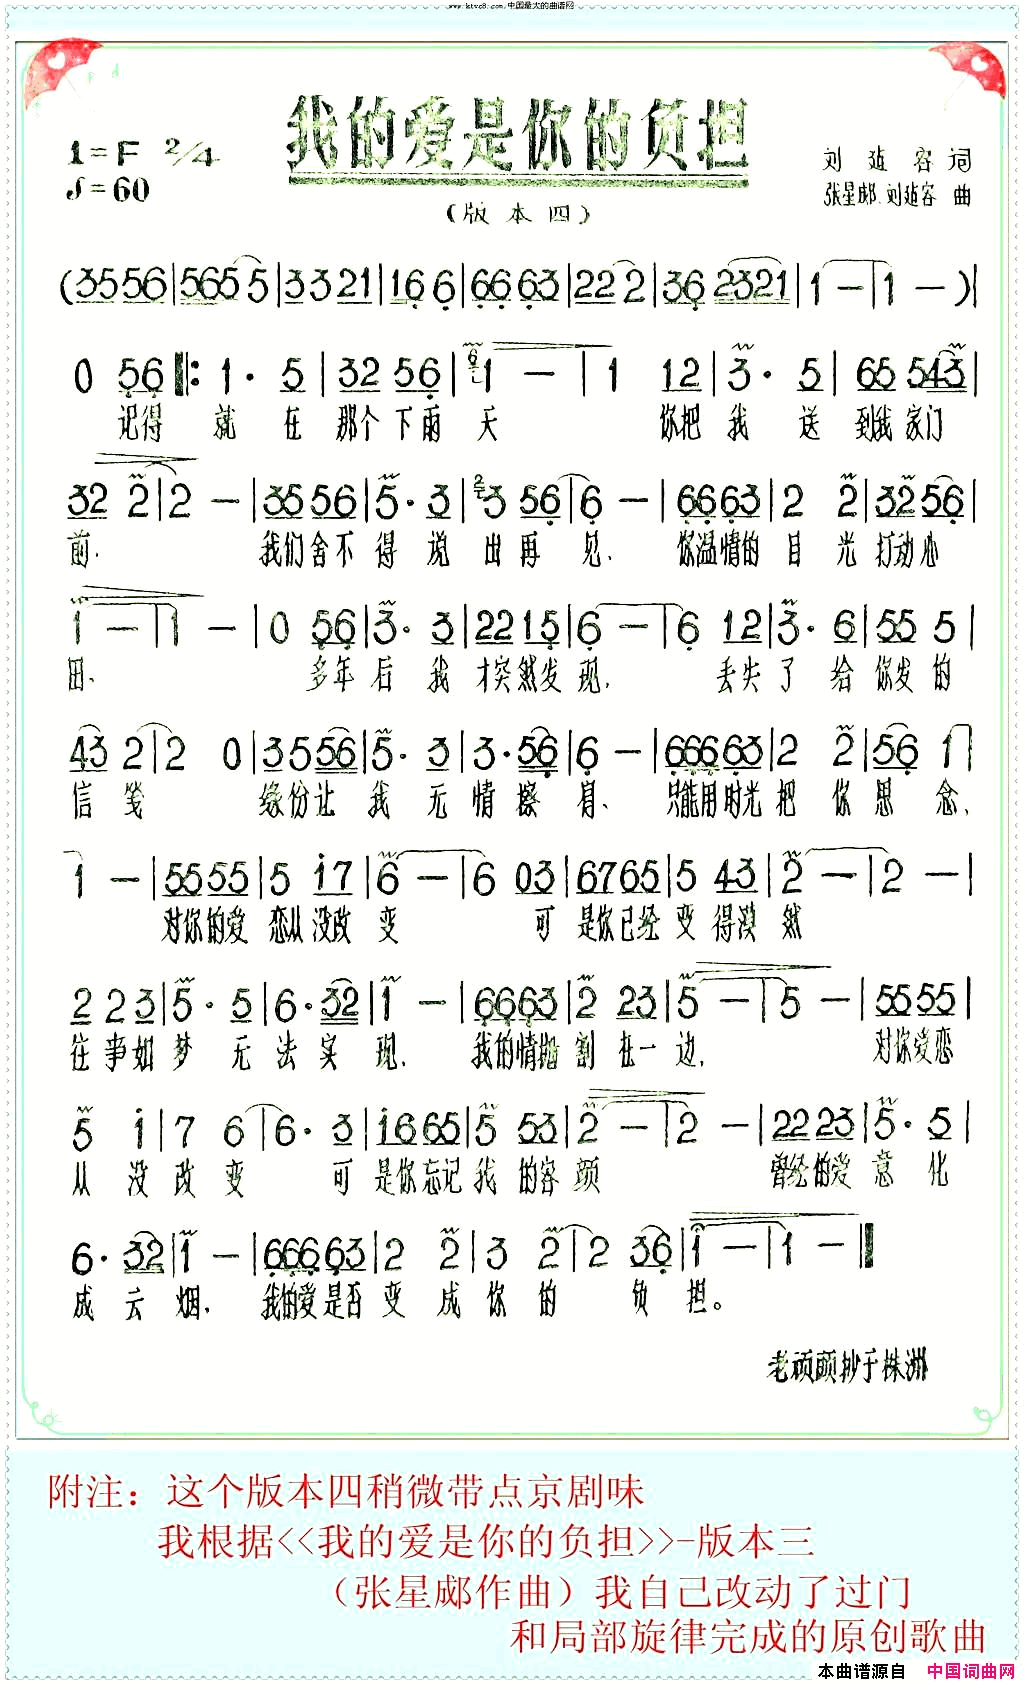 www.ktvc8.com.中国最大的曲谱网
我的爱是你的负担
1=F 2/4
♩=60
(版本四)
刘延容 词
张星邮.刘延容 曲
(3556|5655|3321|166|6663|222|362321|1—|1—)|
0 56‖:1· 5|32 56|1—|1 12|3· 5|65 543|
记得 就 在 那个下雨 天 你把 我 送 到我家门
32 2|2—|3556|5· 3|3 56|6—|6663|2 2|3256|
前. 我们舍不 得 说 出再见. 你温情的 目 光 打动心
1—|1—|0 56|3· 3|2215|6—|6 12|3· 6|55 5|
田. 多年 后 我 才突然发 现. 丢失 了 给 你发的
43 2|2 0|3556|5· 3|3·56|6—|66663|2 2|56 1|
信 笺 缘份让 我 无 情擦 肩. 只能用时光 把 你 思 念.
1—|5555|5 i7|6—|6 03|6765|5 43|2—|2—|
对你的爱 恋从没改 变 可 是你已经 变得漠 然
2 2 3|5· 5|6·32|1—|6663|2 23|5—|5—|5555|
往事如 梦 无 法 实 现. 我的情 割 在一 边. 对你爱恋
5 i|7 6|6· 3|i665|5 53|2—|2—|2223|5· 5|
从 没 改 变 可 是你忘记 我 的容 颜 曾经的爱 意 化
6·32|1—|66663|2 2|3 2|2 36|1—|1—‖
成 云 烟. 我的爱是否 变 成 你 的 负 担。
老顽颐抄于株洲
附注：这个版本四稍微带点京剧味
我根据<<我的爱是你的负担>>-版本三
（张星邮作曲）我自己改动了过门
和局部旋律完成的原创歌曲
本曲谱源自 中国词曲网